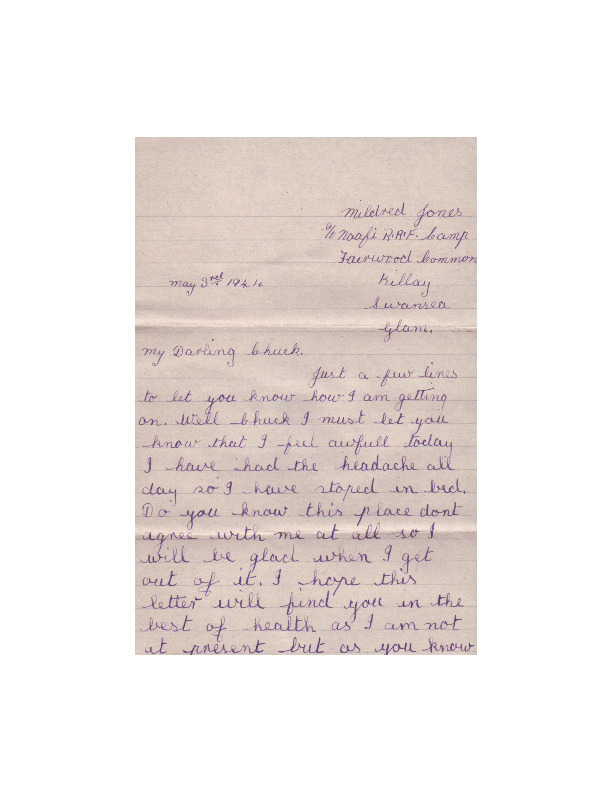 Mildred Jones
c/o Naafi R.A.F. Camp
Fairwood Common
Killay
may 3rd 1944
Swansea
Glam.
my Darling Chuck.
Just a few lines
to let you know how I am getting
on. Well Chuck I must let you
know that I feel awfull today
I have had the headache all
day so I have stoped in bed.
Do you know this place dont
agree with me at all so I
will be glad when I get
out of it. I hope this
letter will find you in the
best of health as I am not
at present but as you know